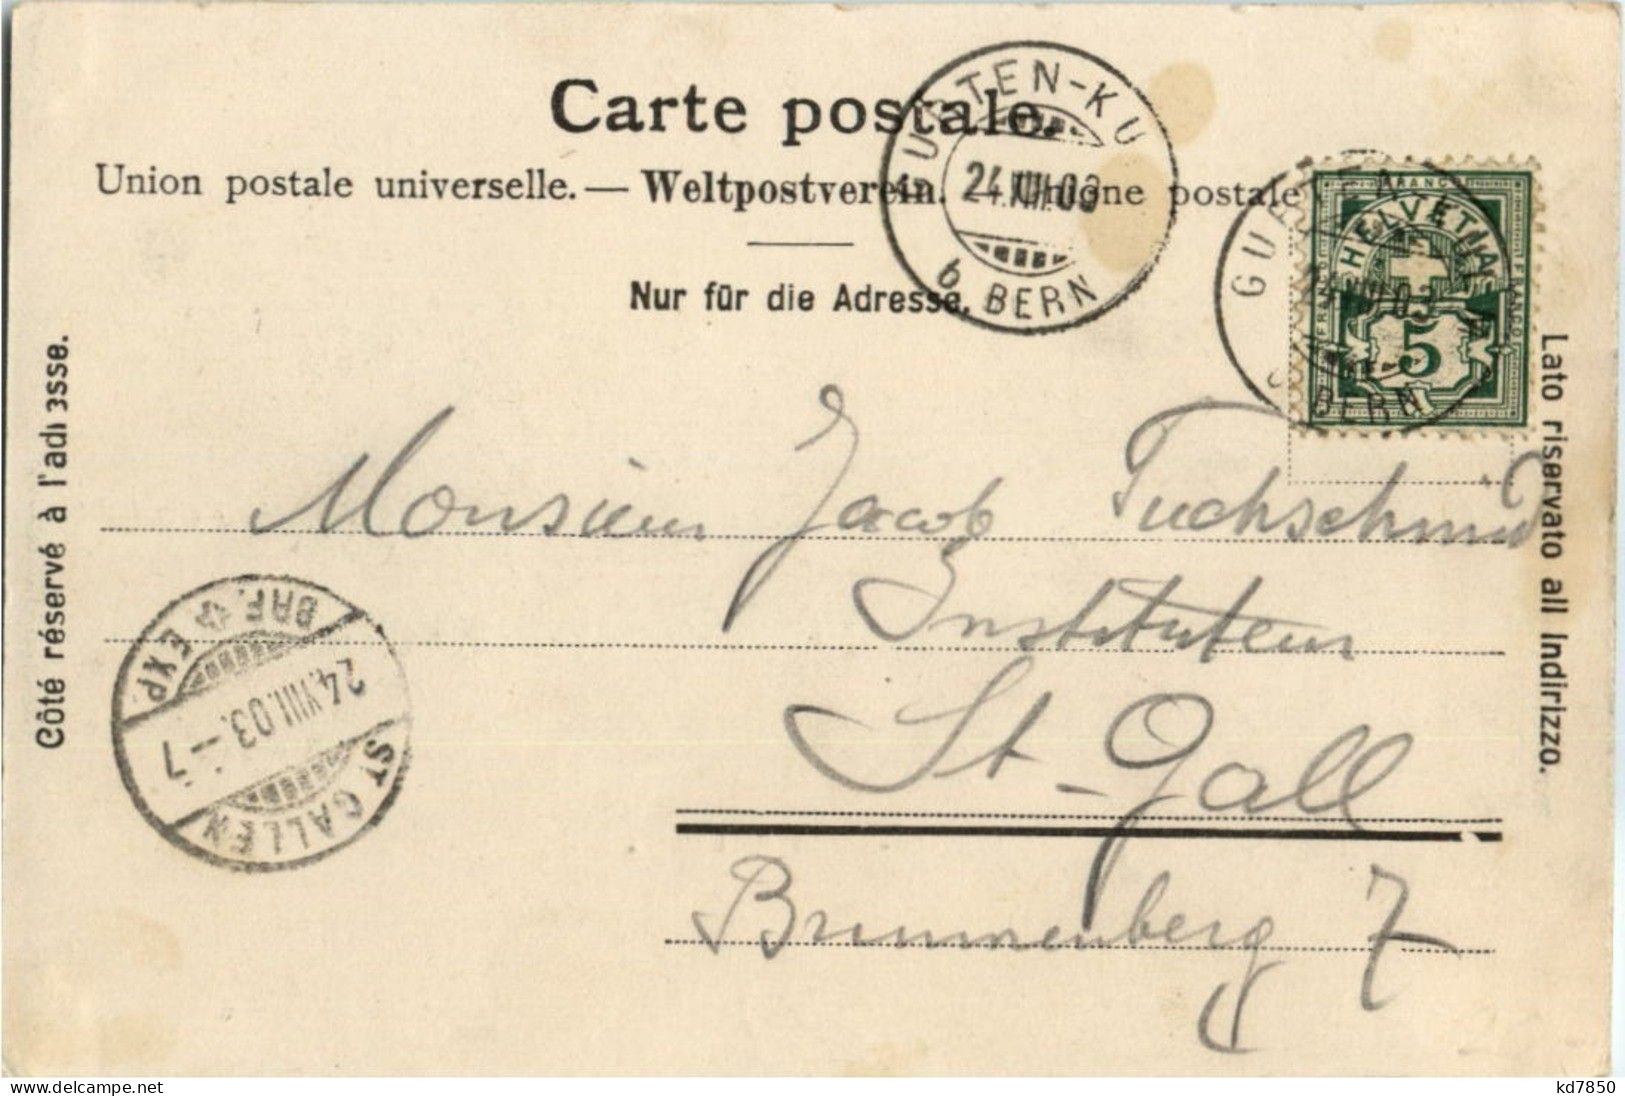 Carte postale.
Union postale universelle. — Weltpostverein. Unione postale
Nur für die Adresse.
Côté réservé à l'adresse.
Lato riservato all Indirizzo.
GURTEN-KU
24.VIII.03
b. BERN
GURTEN
24.VIII.03
BERN
FRANCO
HELVETIA
5
Monsieur Jacob Tuchschmid
Instituteur
St-Gall
Brunnenberg 7
BRF. EXP.
24.VIII.03.-7
ST. GALLEN
www.delcampe.net
kd7850